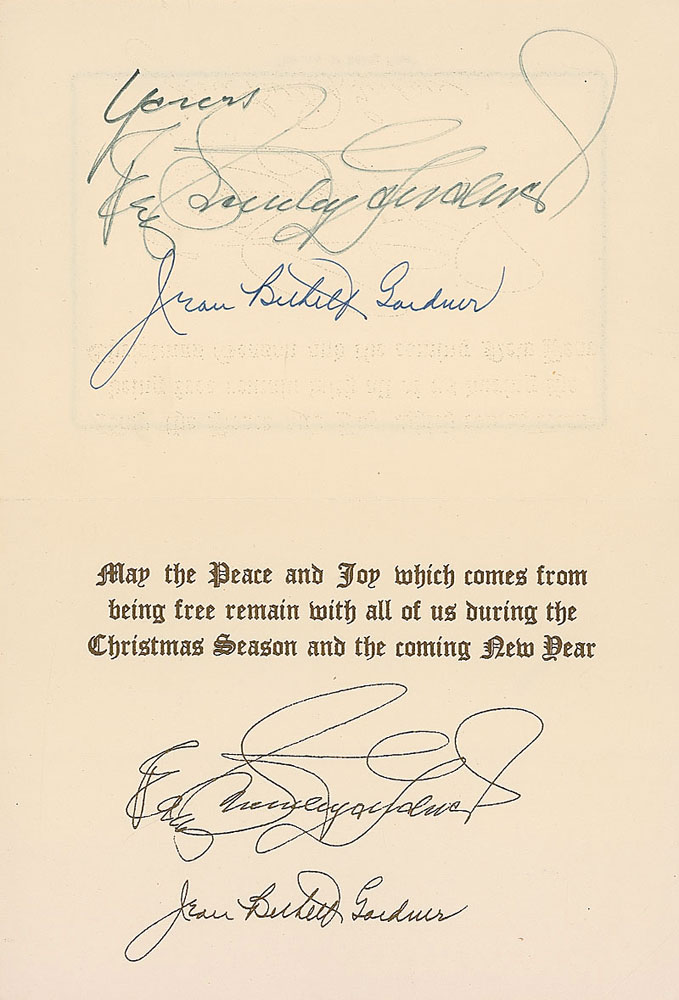 Yours
Erle Stanley Gardner
Jean Bethell Gardner
May the Peace and Joy which comes from
being free remain with all of us during the
Christmas Season and the coming New Year
Erle Stanley Gardner
Jean Bethell Gardner